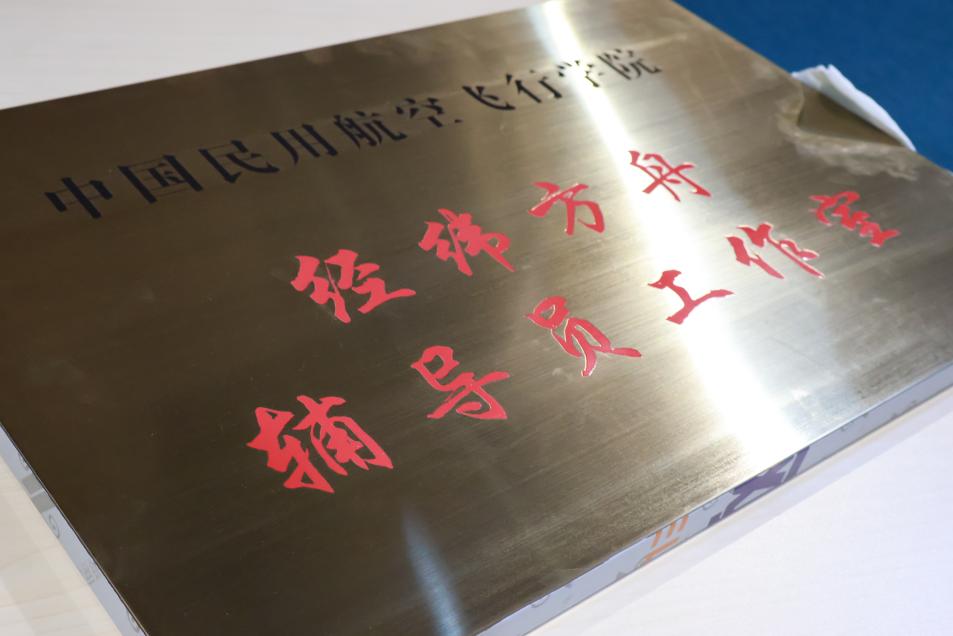 中国民用航空飞行学院
经纬方舟
辅导员工作室